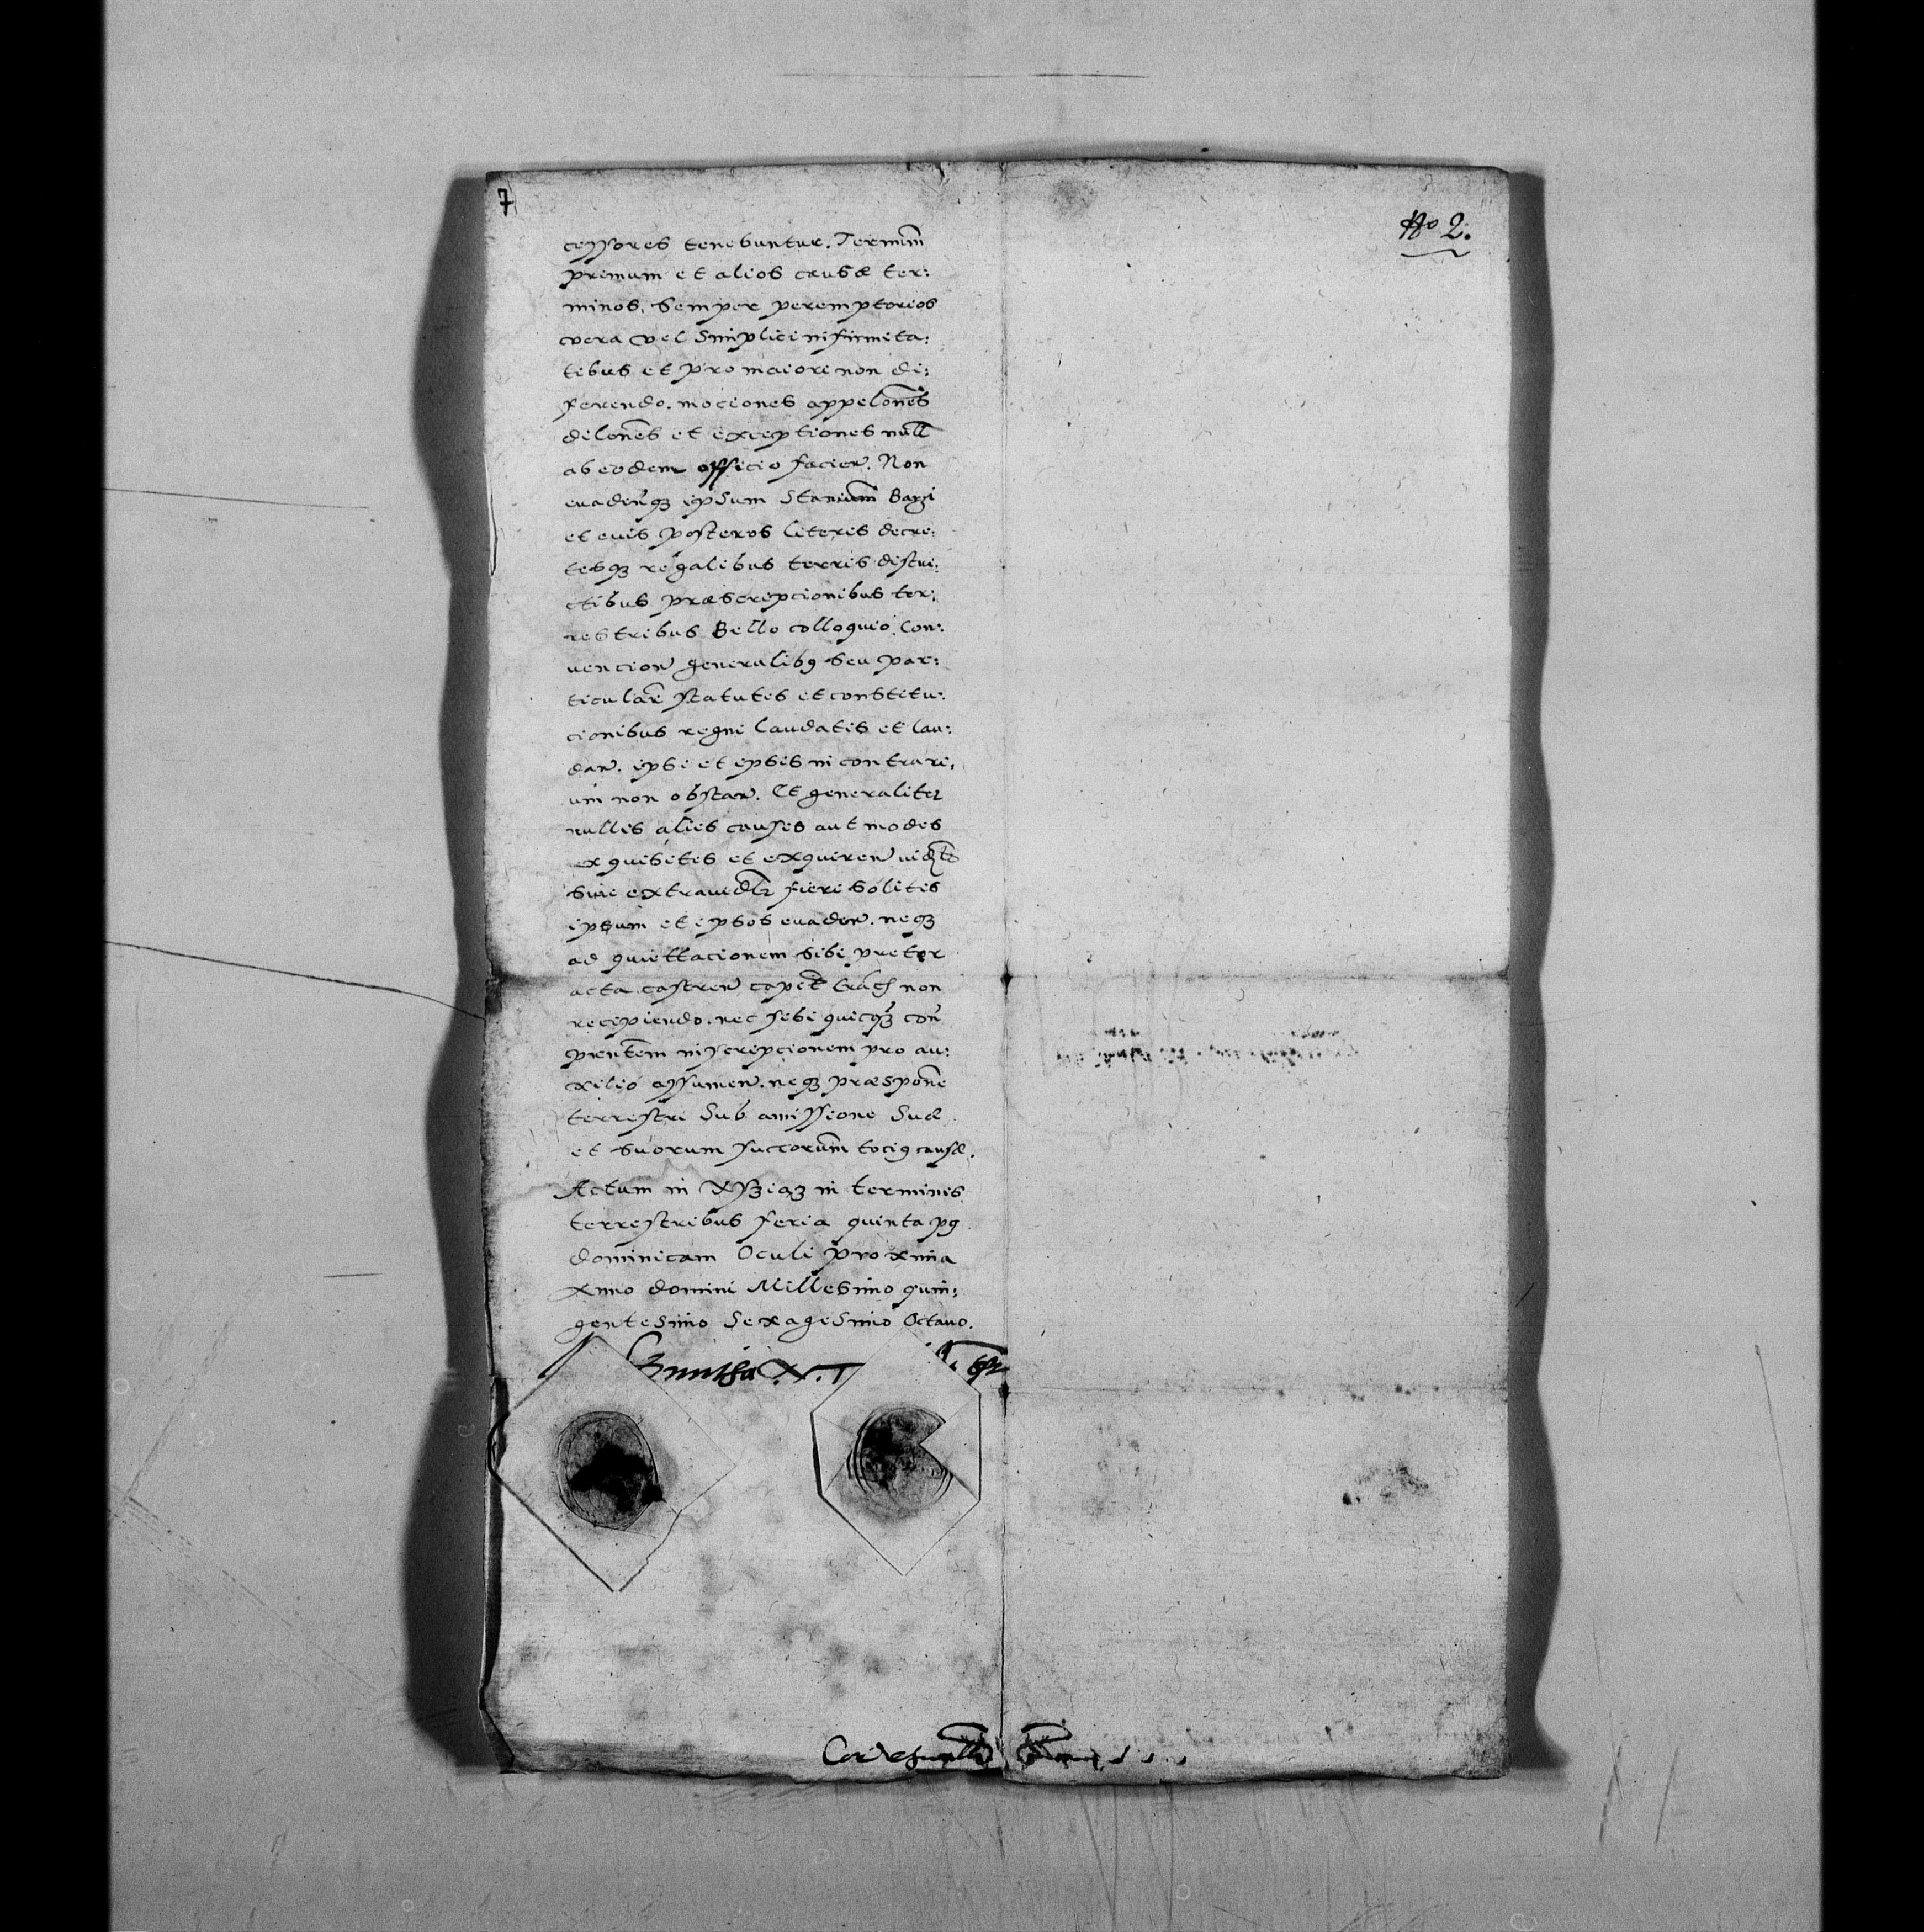 7
No 2.
cessores tenebuntur. Terminũ
primum et alios causæ ter:
minos, semper peremptorios
vera vel simplici infirmita:
tibus et pro maiori non di:
ferendo. mociones appelõnes
delõnes et exceptiones null
ab eodem officio facien. Non
evadenq3 ipsum Stanium Bargi
et eius posteros literis decre:
tisq3 regalibus terris distri:
ctibus præscripcionibus ter:
restribus Bello colloquio. Con:
vencion generalibq seu par:
ticular statutis et constitu:
cionibus regni laudatis et lau:
dan. ipsi et ipsis in contrari:
um non obstan. Et generaliter
nullis aliis causis aut modis
exquisitis et exquiren
sive fieri solitis
ipsum et ipsos evaden. neq3
ad quiettacionem sibi preter
acta castren capit non
recipiendo. nec sibi quicq3 con
inscripcionem pro au:
xilio assumen. neq3
terrestri sub amissione suæ
et suorum tociq causæ.
Actum in Xyziq3 in terminis
terrestribus feria quinta pq
dominicam Oculi proxima
Anno domini Millesimo quin:
gentesimo Sexagesimo Octavo.